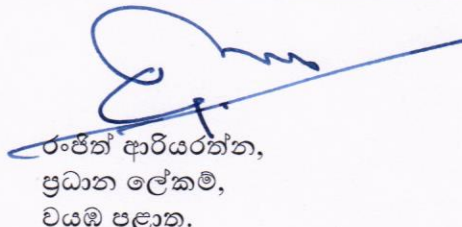 රංජිත් ආරියරත්න,
ප්‍රධාන ලේකම්,
වයඹ පළාත.